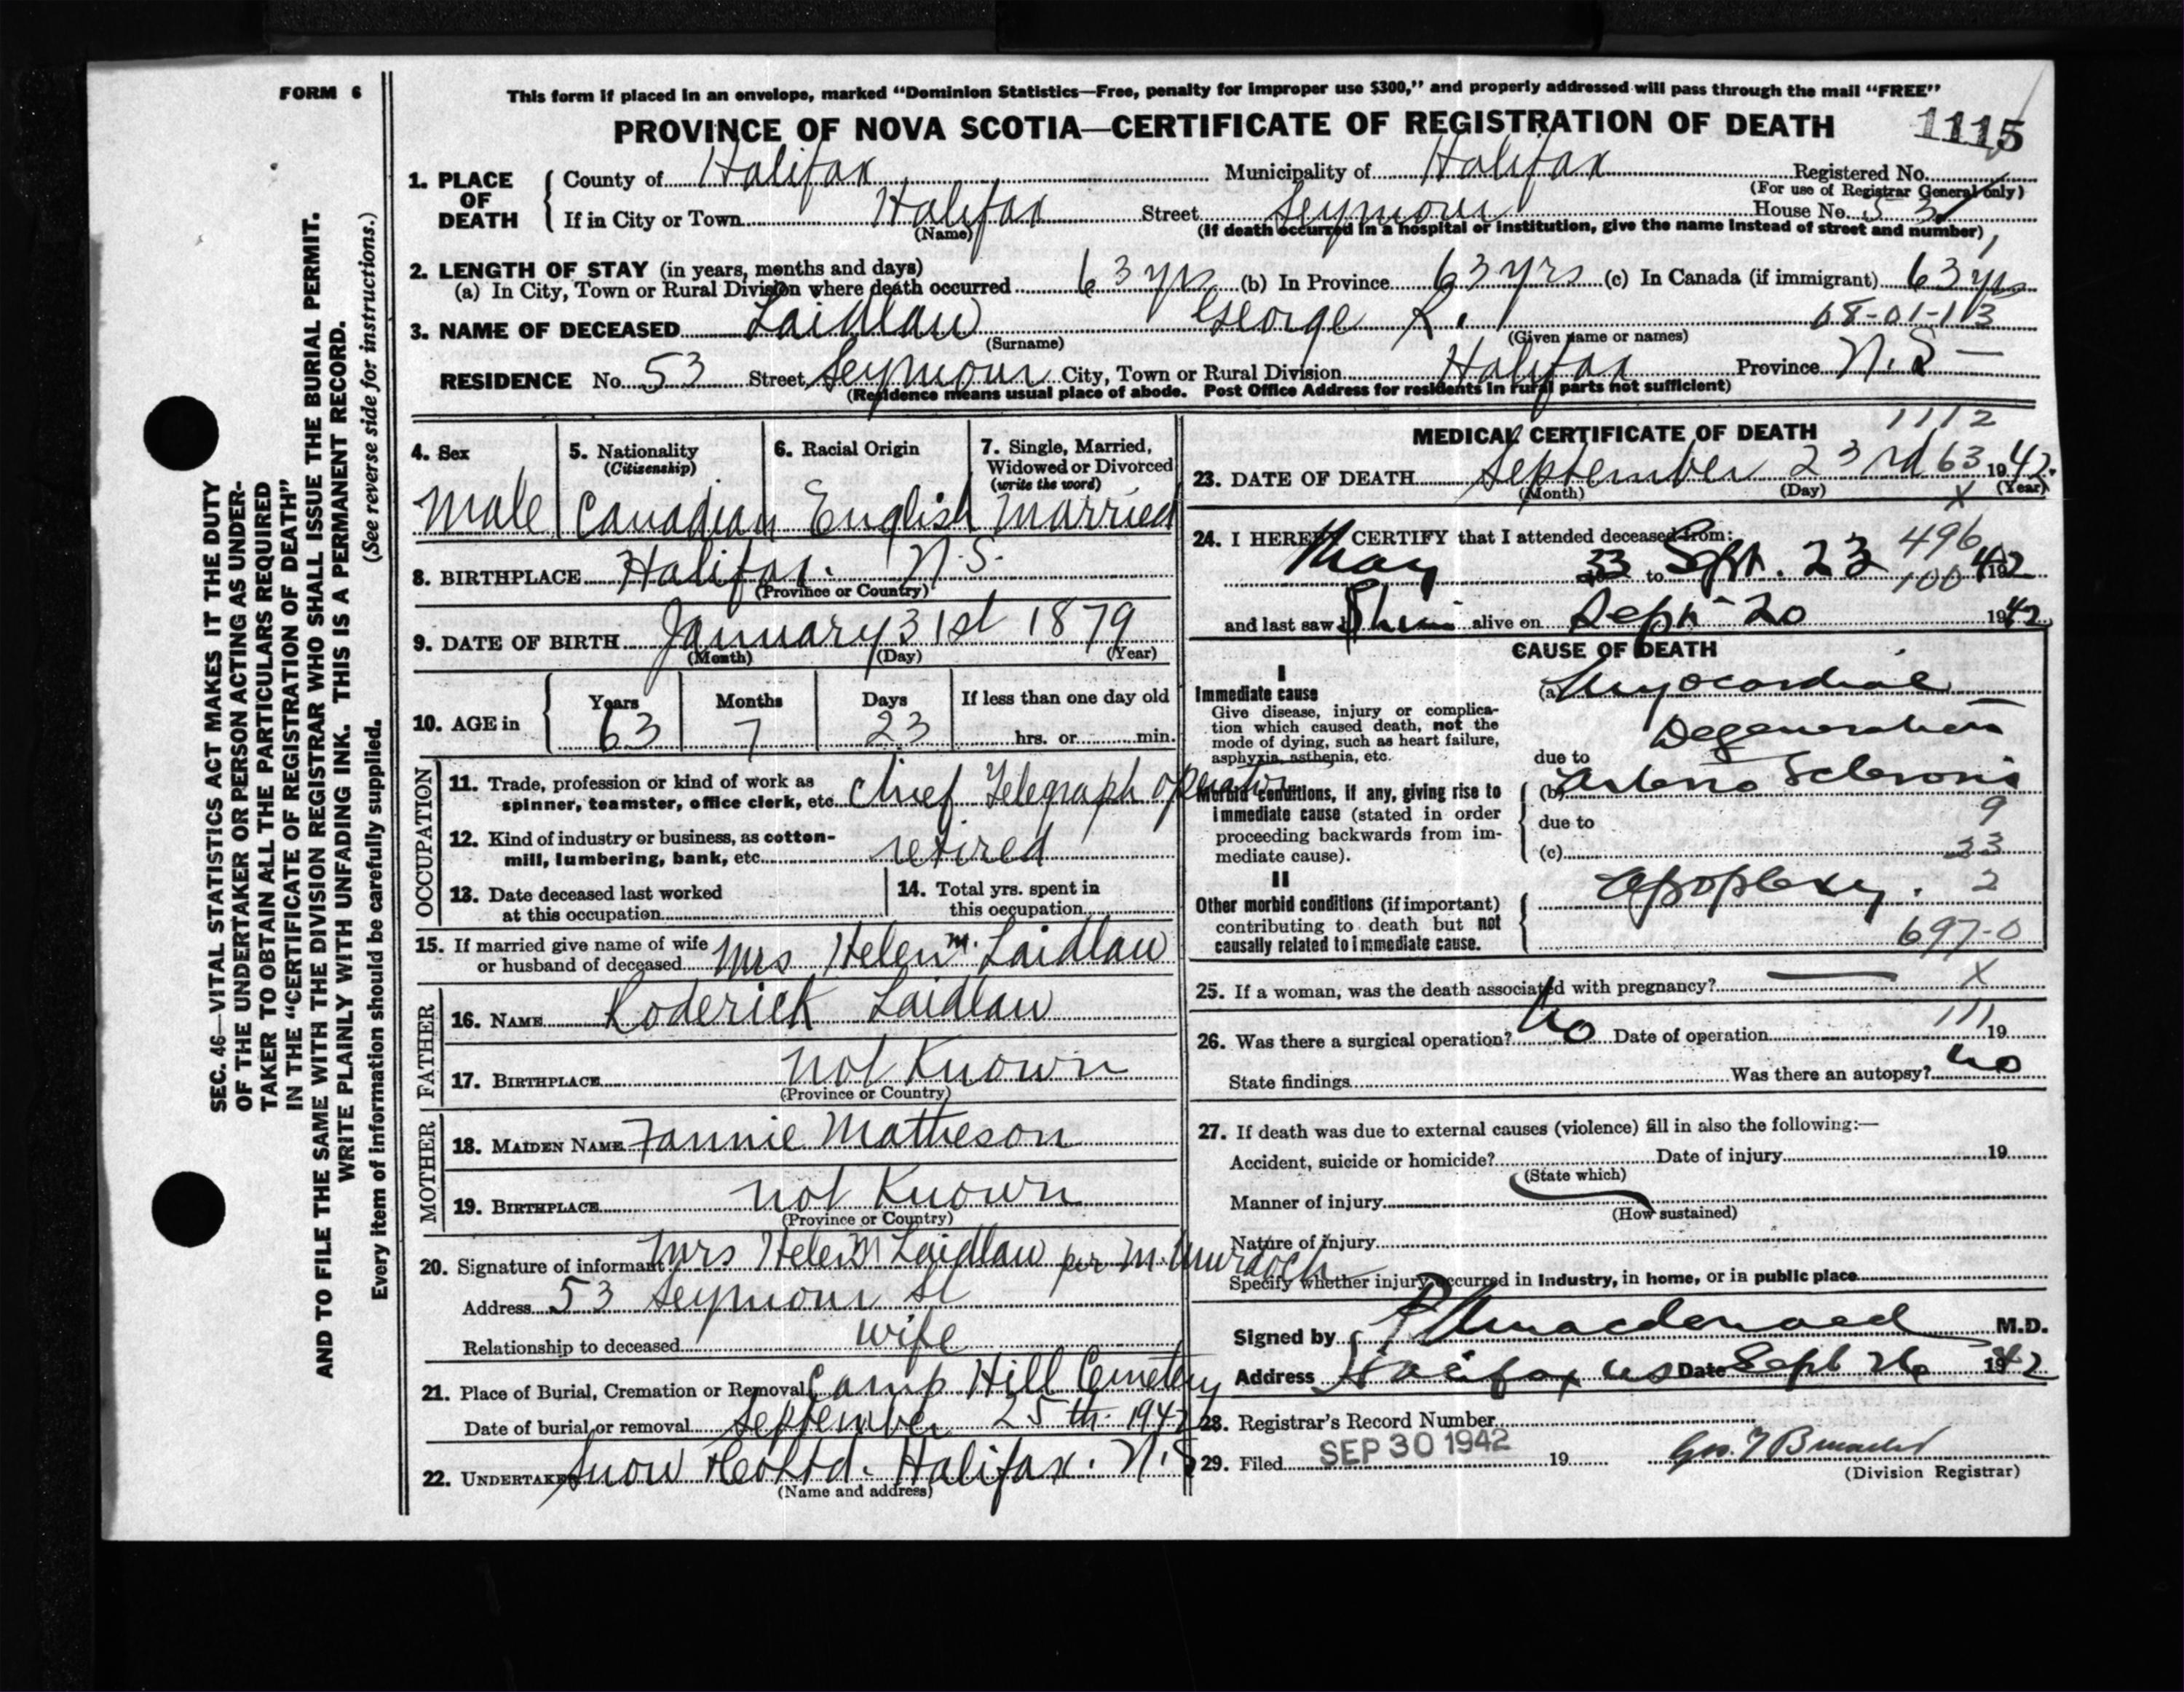 FORM 6
This form if placed in an envelope, marked "Dominion Statistics—Free, penalty for improper use $300," and properly addressed will pass through the mail "FREE"
PROVINCE OF NOVA SCOTIA—CERTIFICATE OF REGISTRATION OF DEATH 1115
1. PLACE OF DEATH
County of Halifax Municipality of Halifax Registered No.
(For use of Registrar General only)
If in City or Town Halifax Street Seymour House No. 53
(Name) (If death occurred in a hospital or institution, give the name instead of street and number)
2. LENGTH OF STAY (in years, months and days)
(a) In City, Town or Rural Division where death occurred 63 yrs (b) In Province 63 yrs (c) In Canada (if immigrant) 63 yrs
68-01-113
3. NAME OF DECEASED Laidlaw George R.
(Surname) (Given name or names)
RESIDENCE No. 53 Street Seymour City, Town or Rural Division Halifax Province N.S—
(Residence means usual place of abode. Post Office Address for residents in rural parts not sufficient)
4. Sex
Male
5. Nationality
(Citizenship)
Canadian
6. Racial Origin
English
7. Single, Married,
Widowed or Divorced
(write the word)
Married
8. BIRTHPLACE Halifax. N.S.
(Province or Country)
9. DATE OF BIRTH January 31st 1879
(Month) (Day) (Year)
10. AGE in
Years Months Days If less than one day old
63 7 23 hrs. or min.
OCCUPATION
11. Trade, profession or kind of work as
spinner, teamster, office clerk, etc. Chief Telegraph Operator
12. Kind of industry or business, as cotton-
mill, lumbering, bank, etc. retired
13. Date deceased last worked
at this occupation
14. Total yrs. spent in
this occupation
15. If married give name of wife
or husband of deceased Mrs Helen M. Laidlaw
FATHER
16. NAME Roderick Laidlaw
17. BIRTHPLACE not Known
(Province or Country)
MOTHER
18. MAIDEN NAME Fannie Matheson
19. BIRTHPLACE not Known
(Province or Country)
20. Signature of informant Mrs Helen M Laidlaw per M. Murdoch
Address 53 Seymour St
Relationship to deceased wife
21. Place of Burial, Cremation or Removal Camp Hill Cemetery
Date of burial or removal September 25th. 1942
22. UNDERTAKER Snow & Co Ltd. Halifax. N.S
(Name and address)
1112
MEDICAL CERTIFICATE OF DEATH
23. DATE OF DEATH September 23rd 63 1942.
(Month) (Day) (Year)
X
24. I HEREBY CERTIFY that I attended deceased from: 496
May 33 to Sept. 23 100 1942
and last saw him alive on Sept 20 1942
CAUSE OF DEATH
I
Immediate cause
Give disease, injury or complica-
tion which caused death, not the
mode of dying, such as heart failure,
asphyxia, asthenia, etc.
(a) Myocardial
Degeneration
due to
Morbid conditions, if any, giving rise to
immediate cause (stated in order
proceeding backwards from im-
mediate cause).
(b) Arterio Sclerosis
9
due to
(c) 33
II
Other morbid conditions (if important)
contributing to death but not
causally related to immediate cause.
Apoplexy. 2
697-0
25. If a woman, was the death associated with pregnancy? — X
111
26. Was there a surgical operation? No Date of operation 19
State findings Was there an autopsy? No
27. If death was due to external causes (violence) fill in also the following:—
Accident, suicide or homicide? Date of injury 19
(State which)
Manner of injury
(How sustained)
Nature of injury
Specify whether injury occurred in industry, in home, or in public place
Signed by Macdonald M.D.
Address Halifax NS Date Sept 26 1942
28. Registrar's Record Number
29. Filed SEP 30 1942 19
(Division Registrar)
SEC. 46—VITAL STATISTICS ACT MAKES IT THE DUTY
OF THE UNDERTAKER OR PERSON ACTING AS UNDER-
TAKER TO OBTAIN ALL THE PARTICULARS REQUIRED
IN THE "CERTIFICATE OF REGISTRATION OF DEATH"
AND TO FILE THE SAME WITH THE DIVISION REGISTRAR WHO SHALL ISSUE THE BURIAL PERMIT.
WRITE PLAINLY WITH UNFADING INK. THIS IS A PERMANENT RECORD.
(See reverse side for instructions.)
Every item of information should be carefully supplied.